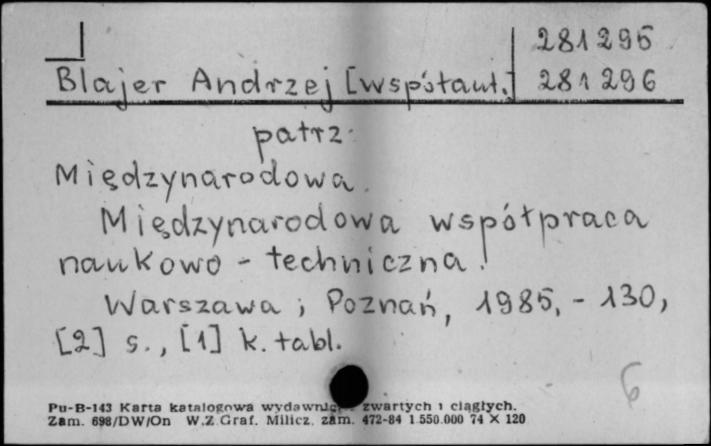 281295
Blajer Andrzej [współaut.] 281296
patrz:
Międzynarodowa.
Międzynarodowa współpraca
naukowo - techniczna.
Warszawa ; Poznań, 1985, - 130,
[2] s., [1] k. tabl.
6
Pu-B-143 Karta katalogowa zwartych i ciągłych.
Zam. 698/DW/On W.Z.Graf. Milicz. zam. 472-84 1.550.000 74 X 120